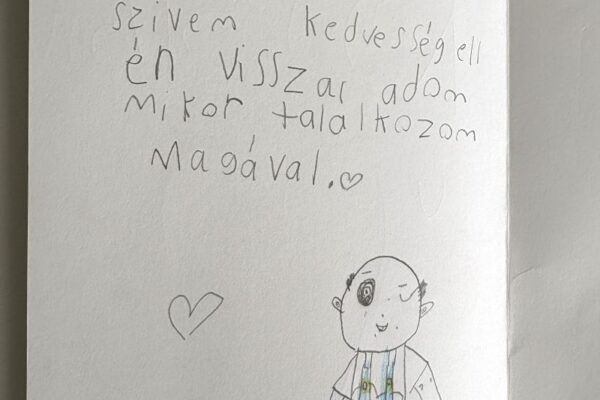 szívem kedvesség ell
én visszaı adom
mikor találkozom
magával.